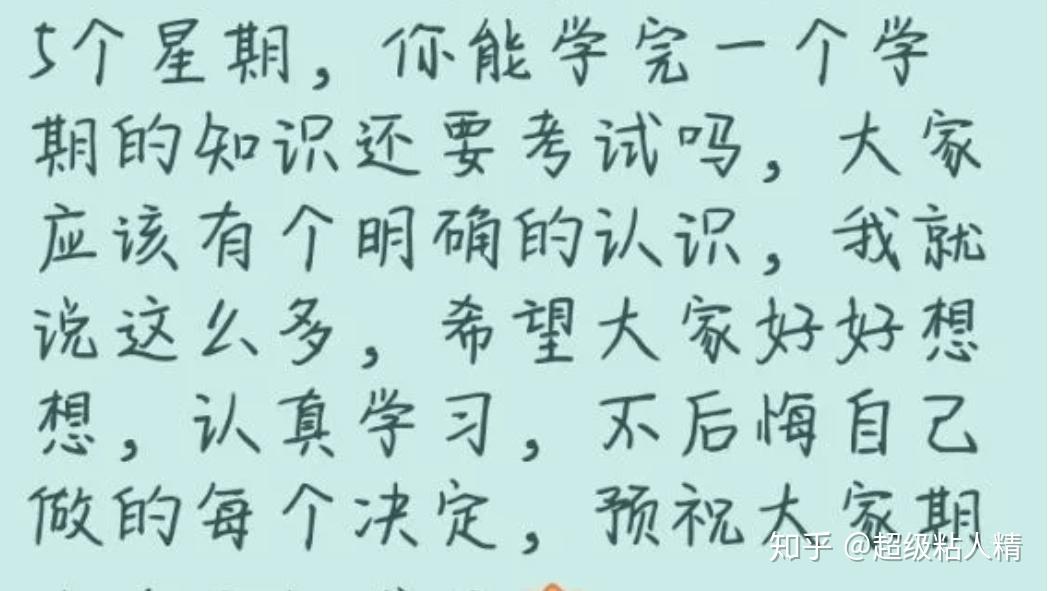 5个星期，你能学完一个学
期的知识还要考试吗，大家
应该有个明确的认识，我就
说这么多，希望大家好好想
想，认真学习，不后悔自己
做的每个决定，预祝大家期
知乎 @超级粘人精